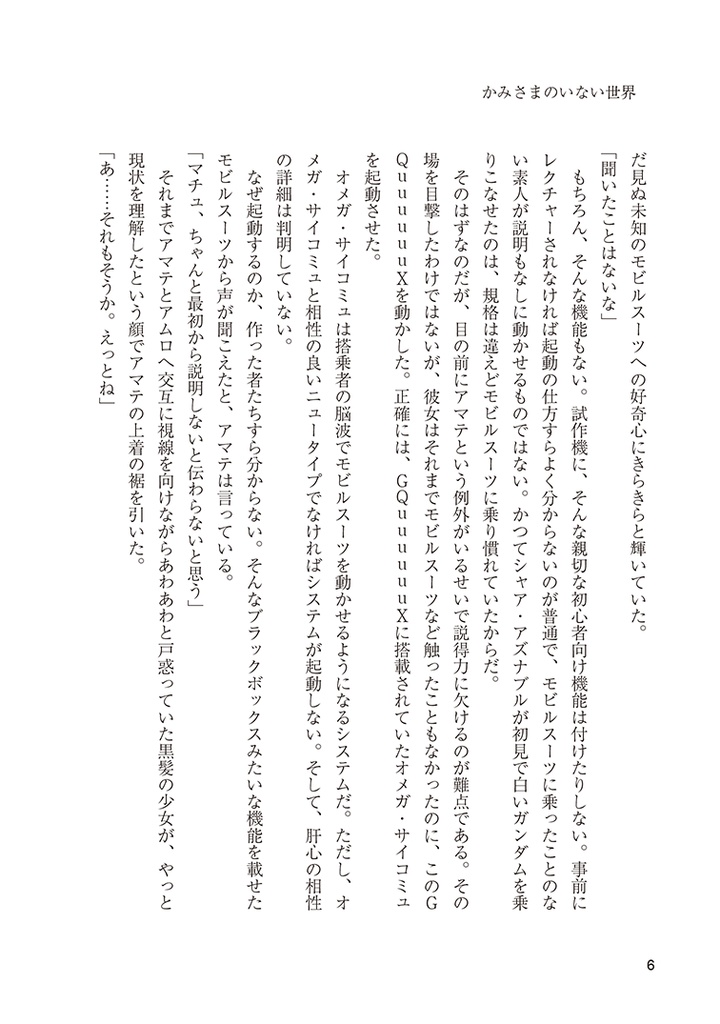 かみさまのいない世界
だ見ぬ未知のモビルスーツへの好奇心にきらきらと輝いていた。
「聞いたことはないな」
　もちろん、そんな機能もない。試作機に、そんな親切な初心者向け機能は付けたりしない。事前に
レクチャーされなければ起動の仕方すらよく分からないのが普通で、モビルスーツに乗ったことのな
い素人が説明もなしに動かせるものではない。かつてシャア・アズナブルが初見で白いガンダムを乗
りこなせたのは、規格は違えどモビルスーツに乗り慣れていたからだ。
　そのはずなのだが、目の前にアマテという例外がいるせいで説得力に欠けるのが難点である。その
場を目撃したわけではないが、彼女はそれまでモビルスーツなど触ったこともなかったのに、このG
QuuuuuuXを動かした。正確には、GQuuuuuuXに搭載されていたオメガ・サイコミュ
を起動させた。
　オメガ・サイコミュは搭乗者の脳波でモビルスーツを動かせるようになるシステムだ。ただし、オ
メガ・サイコミュと相性の良いニュータイプでなければシステムが起動しない。そして、肝心の相性
の詳細は判明していない。
　なぜ起動するのか、作った者たちすら分からない。そんなブラックボックスみたいな機能を載せた
モビルスーツから声が聞こえたと、アマテは言っている。
「マチュ、ちゃんと最初から説明しないと伝わらないと思う」
　それまでアマテとアムロへ交互に視線を向けながらあわあわと戸惑っていた黒髪の少女が、やっと
現状を理解したという顔でアマテの上着の裾を引いた。
「あ……それもそうか。えっとね」
6